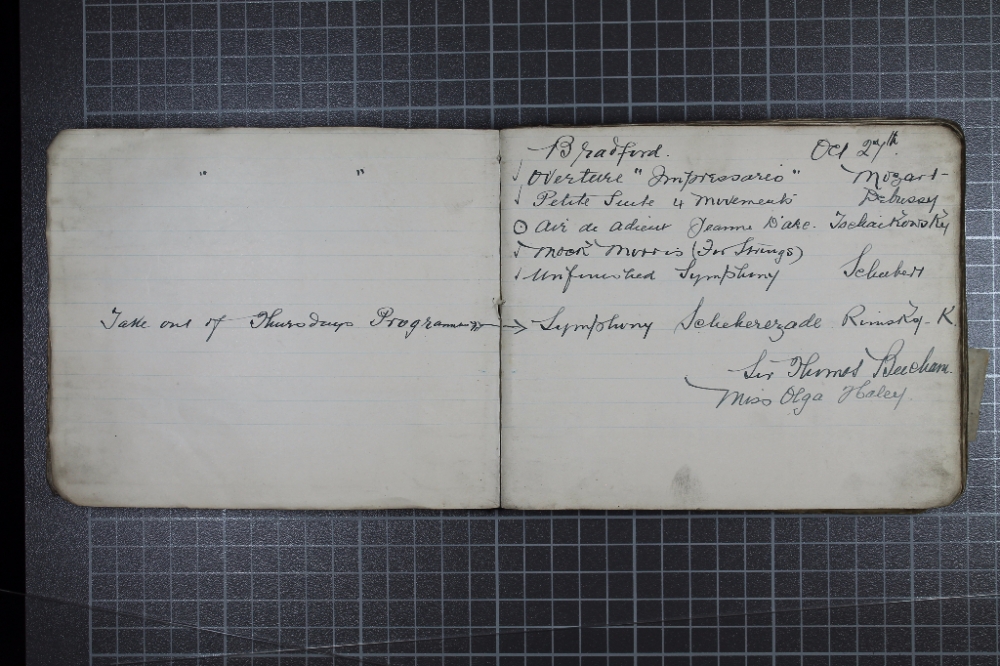 " "
Take out of Thursdays Programme →
Bradford. Oct 27th.
Overture "Impressario" Mozart
Petite Suite 4 Movements Debussy
Air de adieu Jeanne D'arc. Tschaikowsky
Mock Morris (For Strings)
Unfinished Symphony Schubert
Symphony Scheherezade Rimsky-K.
Sir Thomas Beecham.
Miss Olga Haley.